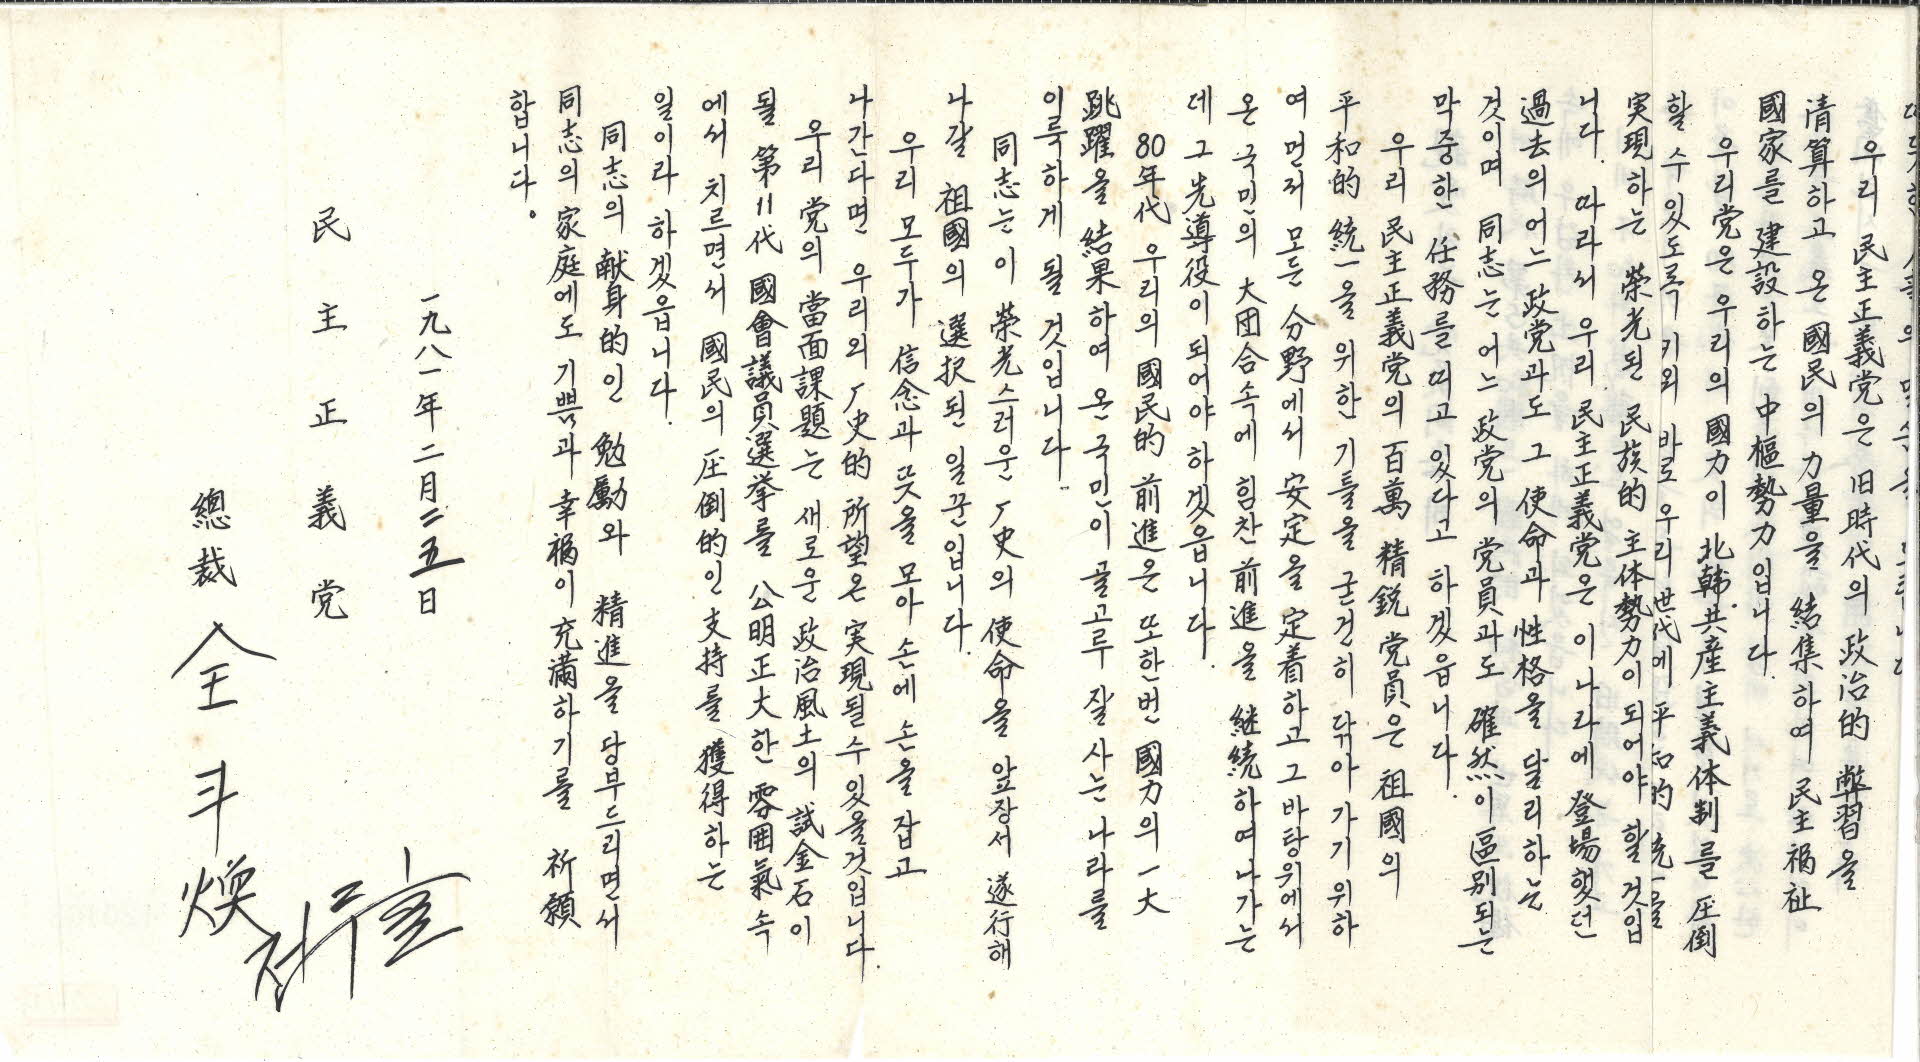 우리 民主正義党은 旧時代의 政治的 弊習을
清算하고 온 國民의 力量을 結集하여 民主福祉
國家를 建設하는 中樞勢力입니다.
우리党은 우리의 國力이 北韓共産主義体制를 圧倒
할 수 있도록 키워 바로 우리 世代에 平和的 統一을
実現하는 榮光된 民族的 主体勢力이 되어야 할 것입
니다. 따라서 우리 民主正義党은 이나라에 登場했던
過去의 어느 政党과도 그 使命과 性格을 달리하는
것이며 同志는 어느 政党의 党員과도 確然이 區別되는
막중한 任務를 띠고 있다고 하겠읍니다.
우리 民主正義党의 百萬 精鋭 党員은 祖國의
平和的 統一을 위한 기틀을 굳건히 닦아 가기 위하
여 먼저 모든 分野에서 安定을 定着하고 그 바탕위에서
온 국민의 大団合속에 힘찬 前進을 継続하여나가는
데 그 先導役이 되어야 하겠읍니다.
80年代 우리의 國民的 前進은 또한번 國力의 一大
跳躍을 結果하여 온 국민이 골고루 잘 사는 나라를
이룩하게 될 것입니다.
同志는 이 榮光스러운 厂史의 使命을 앞장서 遂行해
나갈 祖國의 選択된 일꾼입니다.
우리 모두가 信念과 뜻을 모아 손에 손을 잡고
나간다면 우리의 厂史的 所望은 実現될 수 있을것입니다.
우리 党의 當面課題는 새로운 政治風土의 試金石이
될 第11代 國會議員選挙를 公明正大한 雰囲氣 속
에서 치르면서 國民의 圧倒的인 支持를 獲得하는
일이라 하겠읍니다.
同志의 献身的인 勉勵와 精進을 당부드리면서
同志의 家庭에도 기쁨과 幸福이 充滿하기를 祈願
합니다.
一九八一年 二月 二五日
民主正義党
總裁 全斗煥